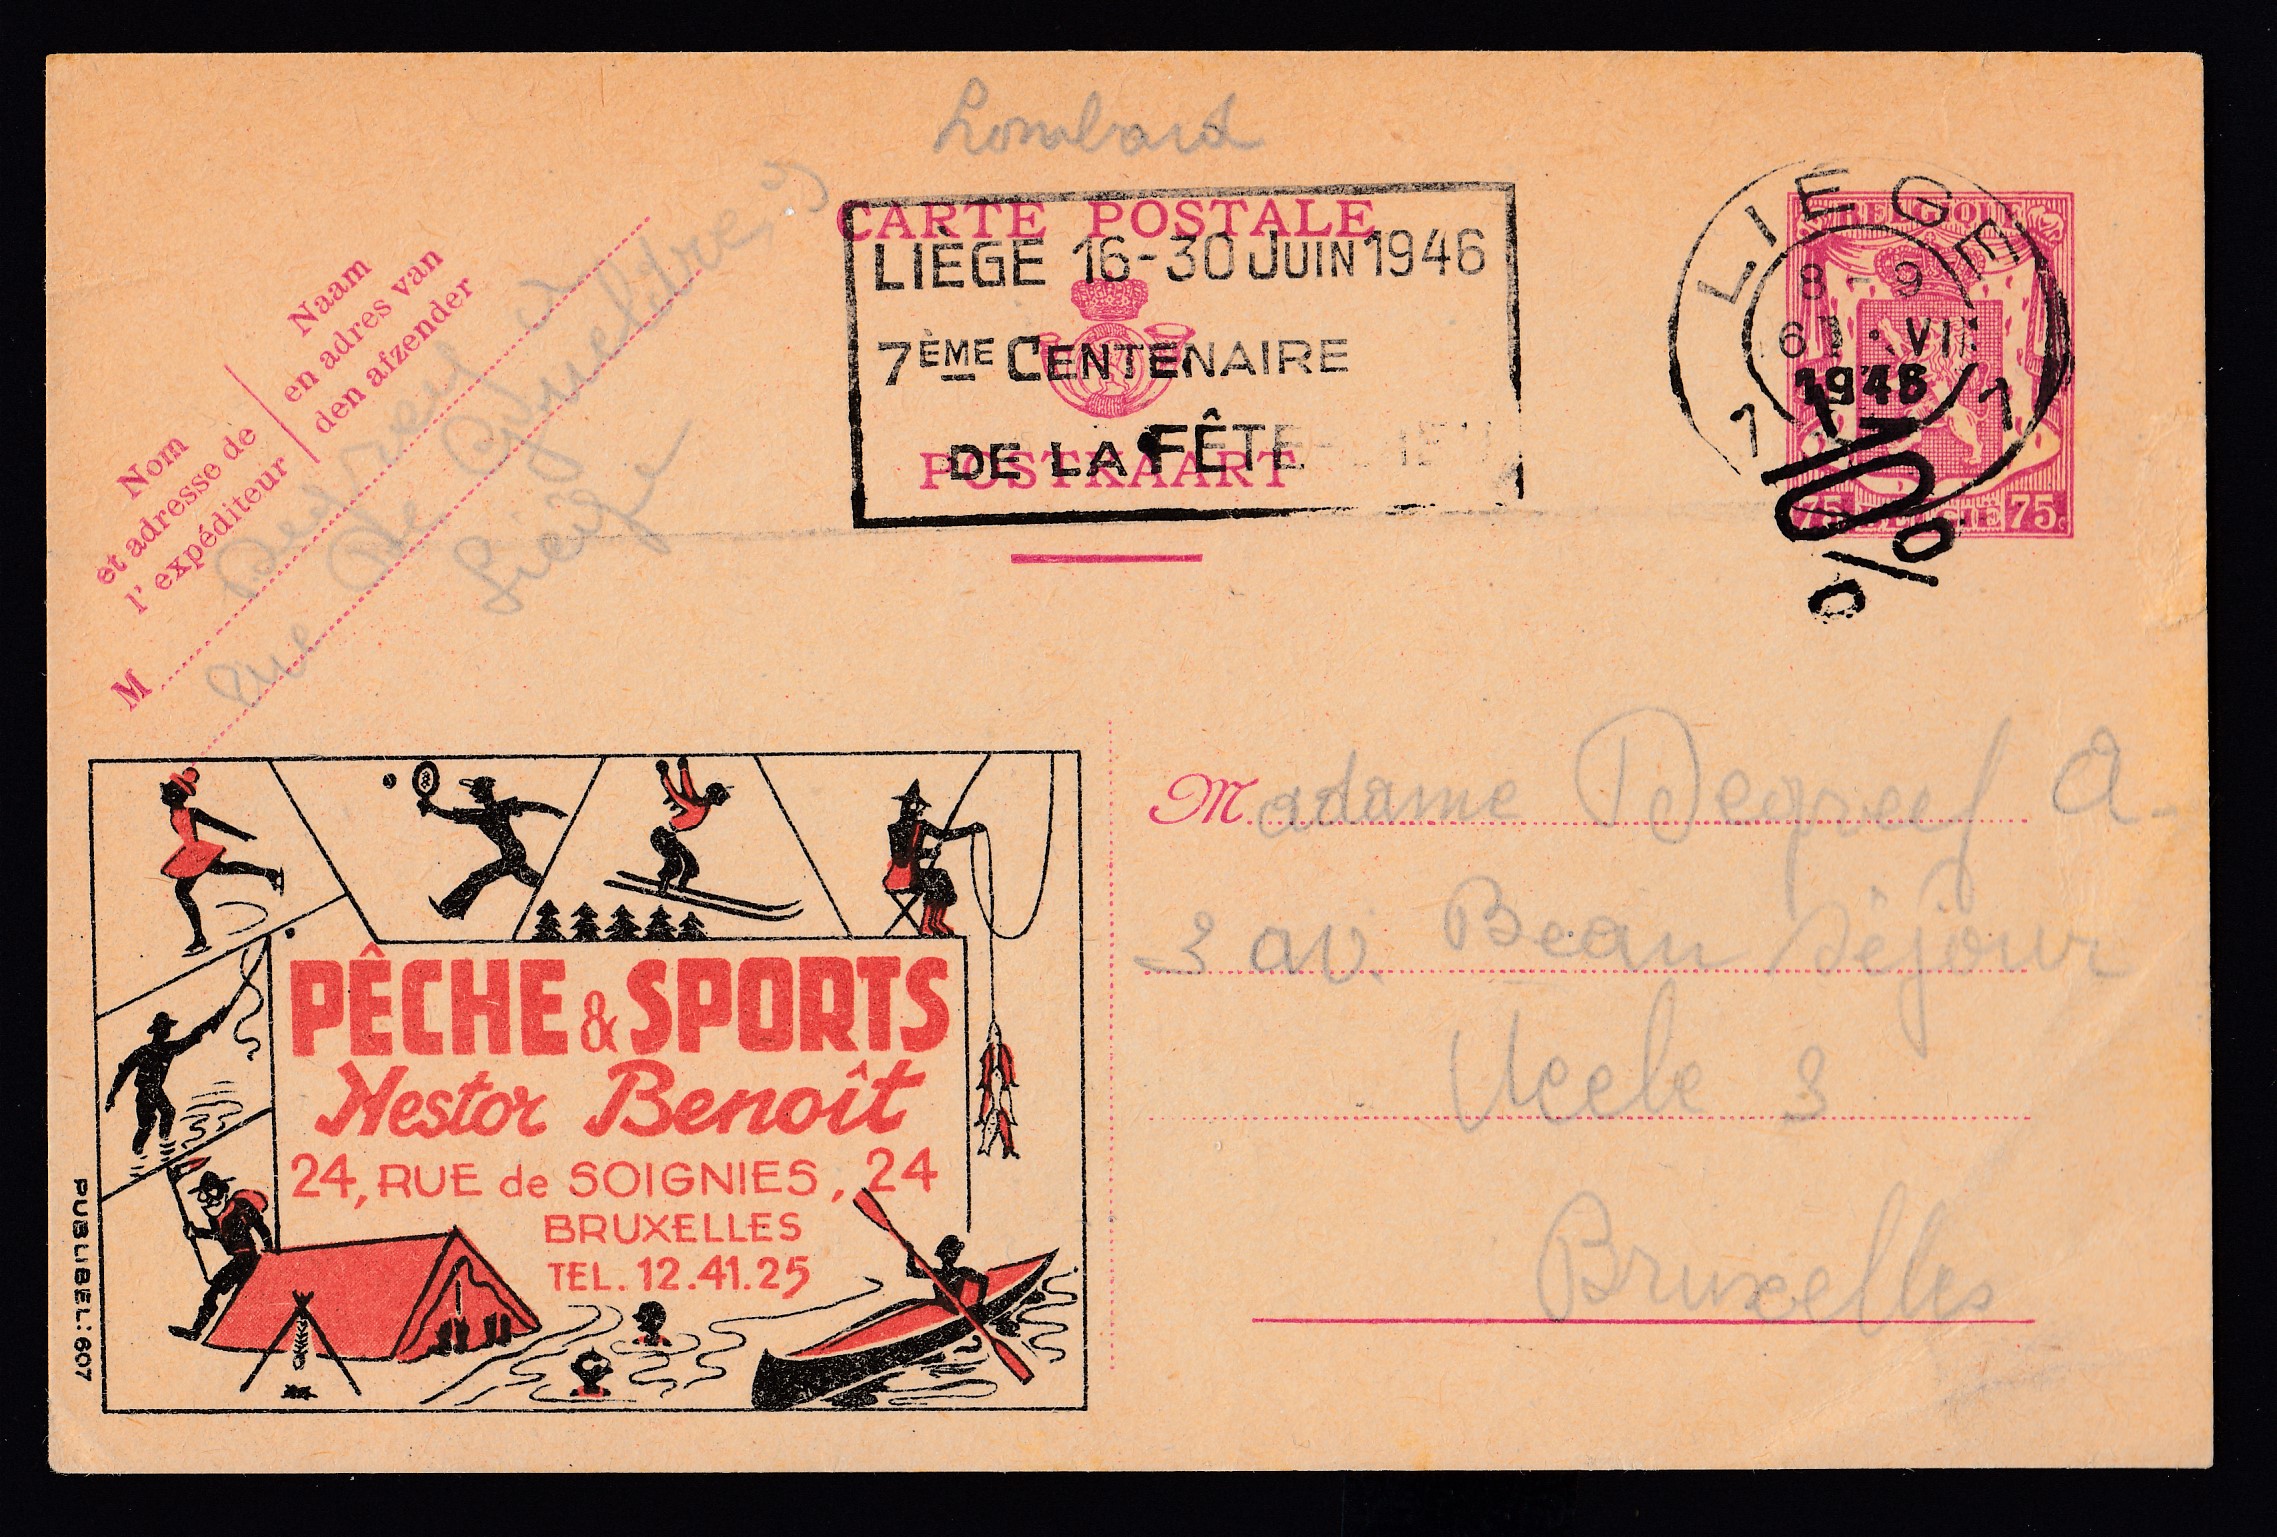 Lombard
CARTE POSTALE
LIÈGE 16-30 JUIN 1946
7ÈME CENTENAIRE
DE LA FÊTE
POSTKAART
LIEGE LIEGE
8-9
VII
1946
1 1
-10%
BELGIQUE
75 BELGIE 75c
Naam
en adres van
den afzender
Nom
et adresse de
l'expéditeur
M
Degreef A
rue de Gueldre, 3
Liège
Madame Degreef A.
3 av. Beau Séjour
Uccle 3
Bruxelles
PÊCHE & SPORTS
Nestor Benoît
24, RUE de SOIGNIES, 24
BRUXELLES
TEL. 12.41.25
PUBLIBEL: 607